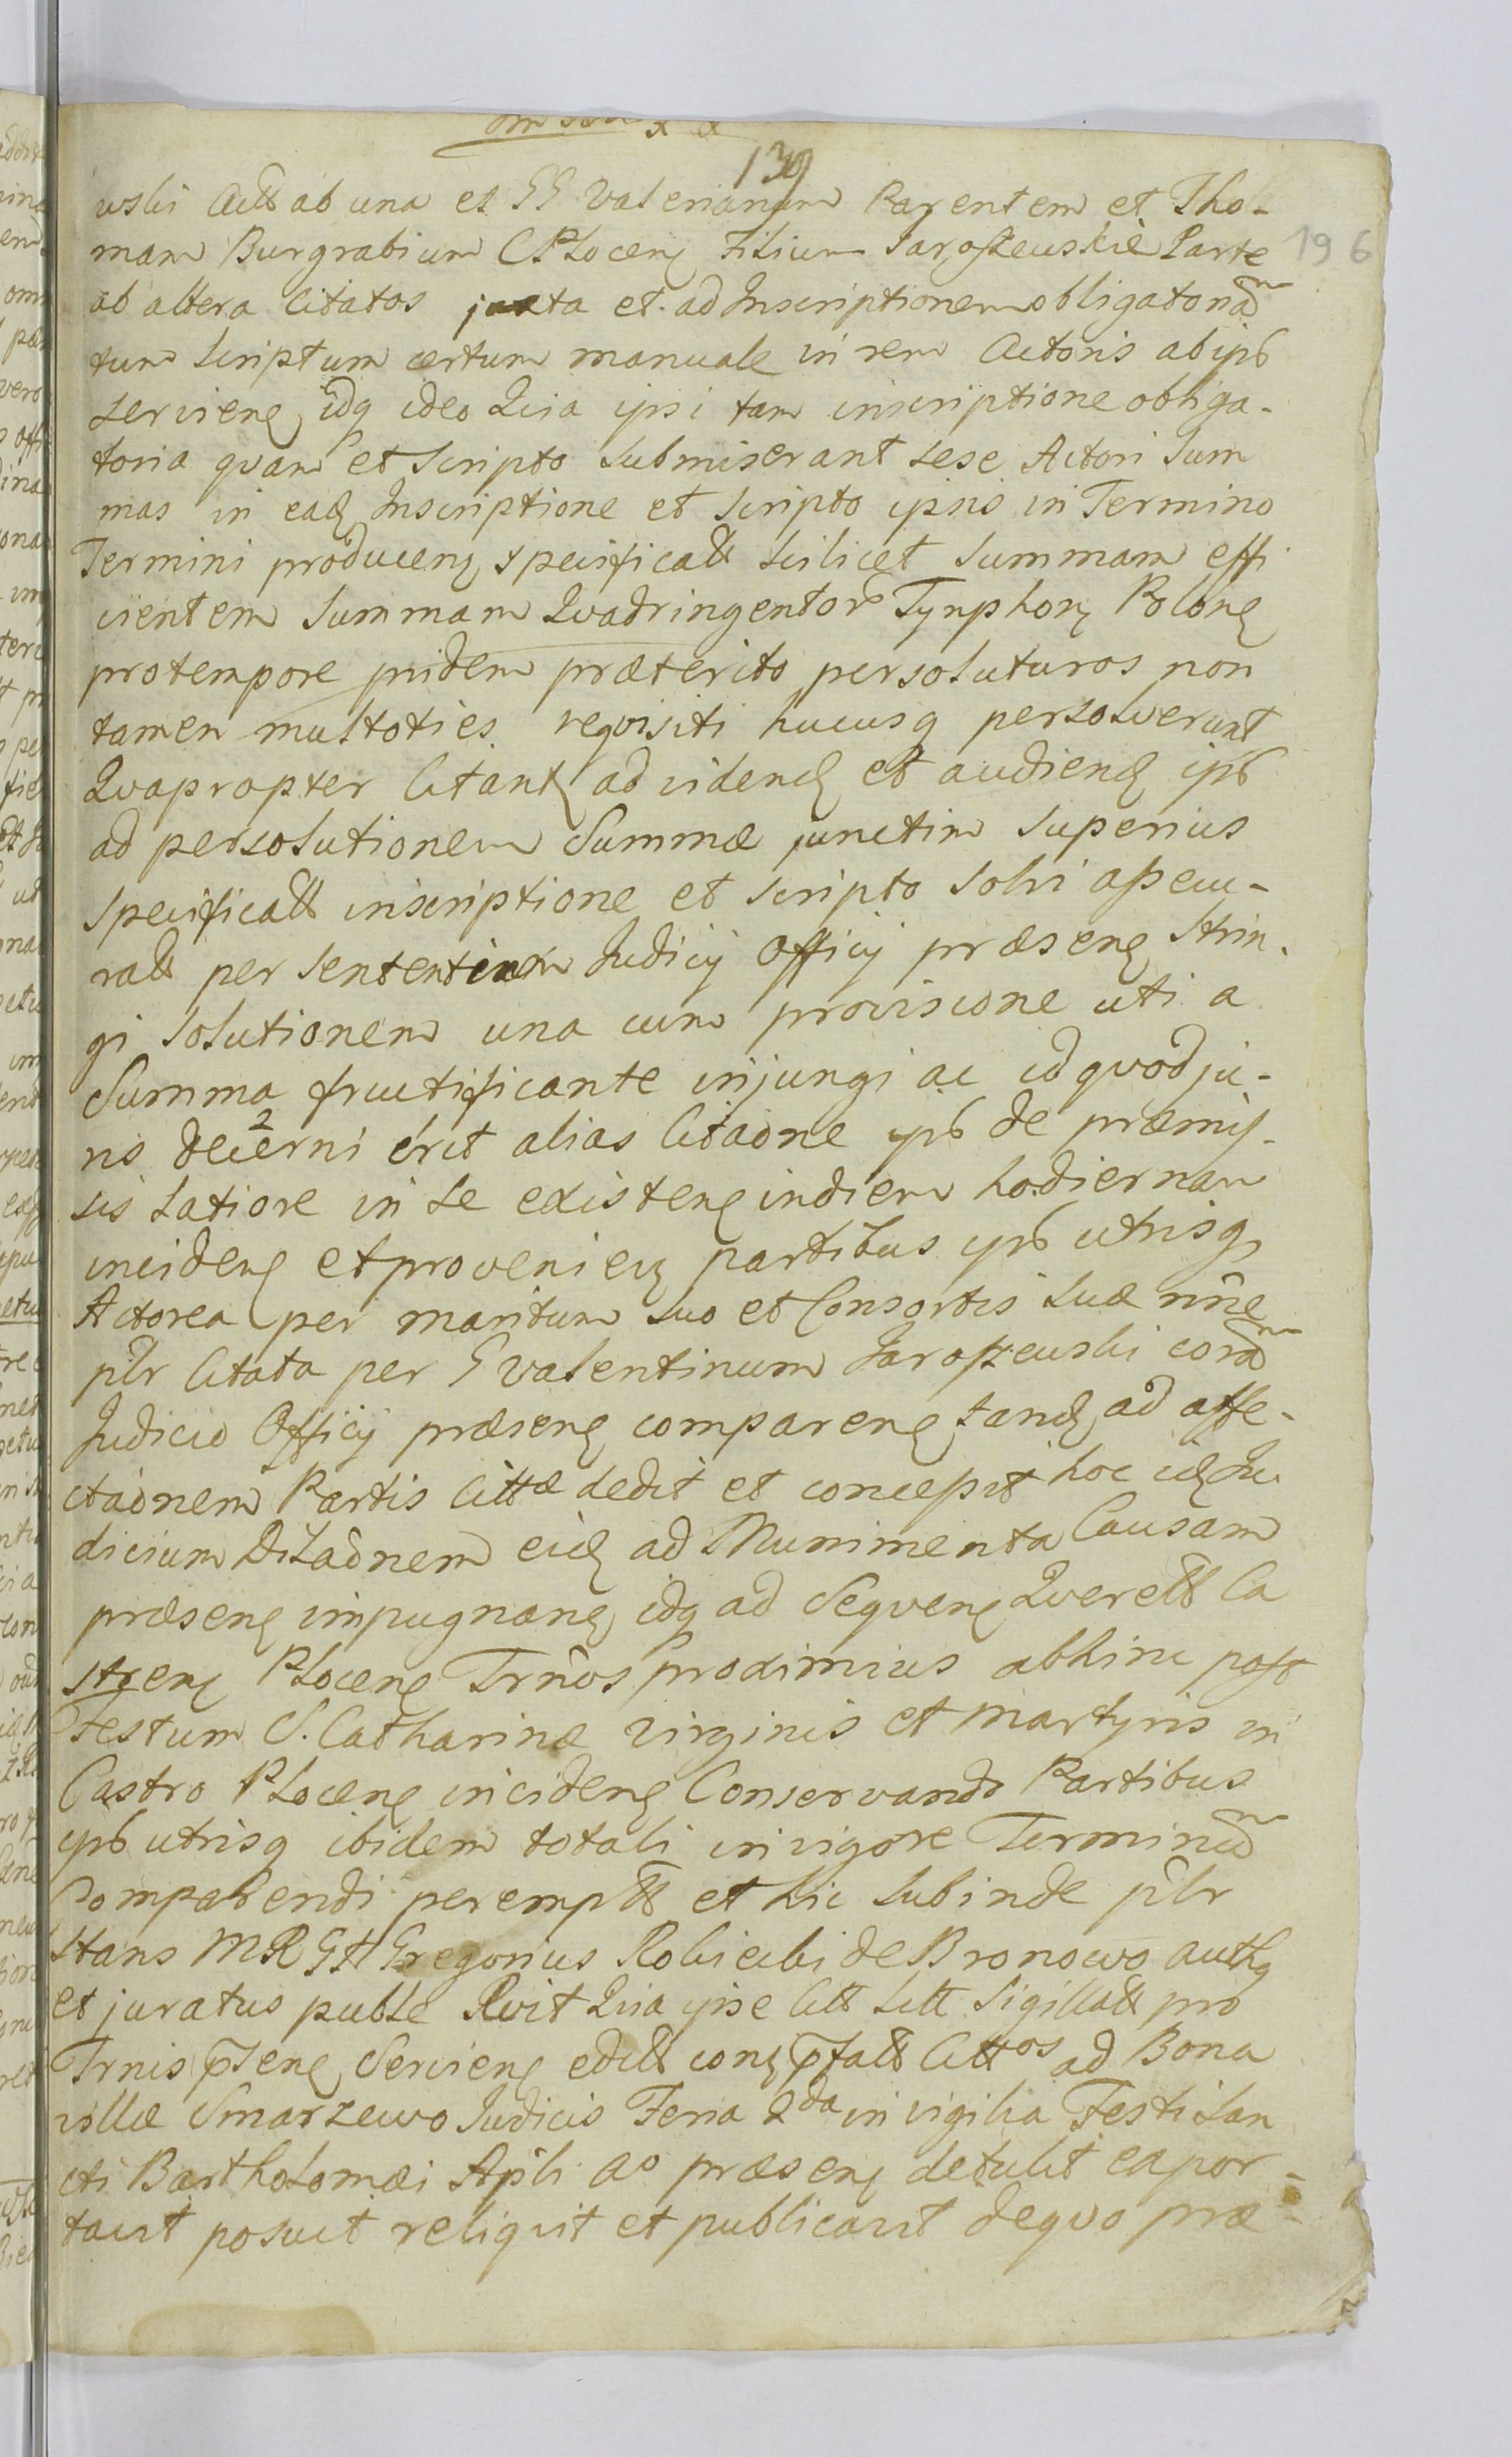 139
196
wski Actt ab una et GG Valerianum Parentem et Tho-
mam Burgrabium CPlocen Filium Jaroszewskie Parte
ab altera Citatos juxta et ad Inscriptionem obligatoriã
tum Scriptum certum manuale in rem Actoris ab ipb
servien idq ideo Quia ipsi tam inscriptione obliga-
toria qvam et Scripto submiserant sese Actori Sum
mas in ead Inscriptione et Scripto ipsis in Termino
Termini producen specificatt scilicet Summam effi
cientem Summam Qvadringentor Tynphon Polon
protempore pridem præterito persoluturos non
tamen multoties reqvisiti hucusq persolverunt
Qvapropter Citant ad videnđ et audienđ ipb
ad persolutionem Summæ junctim superius
specificatt inscriptione et scripto solvi apecu-
ratt per Sententiam Judicij Officij præsen Strin-
gi solutionem una cum provisione uti a
Summa fructificante injungi ac id qvod ju-
ris decerni erit alias Citaõne ipb de præmis-
sis latiore in se existen in diem hodiernam
inciden et provenien partibus ipb utrisq
Actorea per maritum suo et Consortis suæ nñe
plr Citata per G Valentinum Jaroszewski corã
Judicio Officij præsen comparen tand ad affe-
ctaõnem Partis Cittæ dedit et concepit hoc id Ju
dicium Dilaõnem eid ad Munimenta Causam
præsen impugnan idq ad Seqven Qverell Ca
stren Plocen Trños proximius abhinc post
Festum S. Catharinæ Virginis et Martyris in
Castro Plocen inciden Conservando Partibus
ipb utrisq ibidem totali in vigore Terminũ
Comparendi peremptt et hic subinde plr
Stans MRGH Gregorius Robicubi de Bronowo auth
et juratus puble Rvit Quia ipse Citt Litt Sigillatt pro
Trnis pñsen Servien editt con pfatt Cittos ad Bona
villæ Smarzewo Judicis Feria 2da in vigilia Festi San
cti Bartholomæi Apli ao præsen detulit expor-
tavit posuit reliqvit et publicavit de qvo præ-